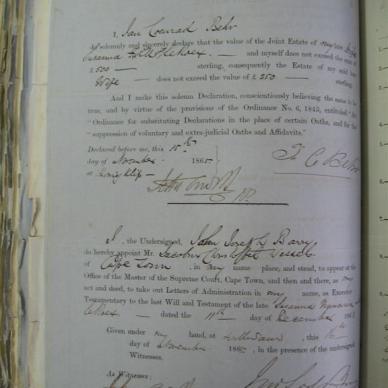 I, Jan Coenrad Behr
do solemnly and sincerely declare that the value of the Joint Estate of my late Wife
Susanna and myself does not exceed the sum of
£500 — sterling, consequently the Estate of my said late
Wife — does not exceed the value of £250 — sterling.
And I make this solemn Declaration, conscientiously believing the same to be
true, and by virtue of the provisions of the Ordinance No. 6, 1845, entitled "
"Ordinance for substituting Declarations in the place of certain Oaths, and for the
"suppression of voluntary and extra-judicial Oaths and Affidavits."
Declared before me, this 10th
day of November 186
at
J C Behr
I, the Undersigned, John Joseph Barry
do hereby appoint Mr. Jacobus Christoffel
of Cape Town, in my name, place, and stead, to appear at the
Office of the Master of the Supreme Court, Cape Town, and then and there, as my
act and deed, to take out Letters of Administration in my name, as Executor
Testamentary to the last Will and Testament of the late Susanna
— dated the 11th day of December 186
Given under my hand, at this
day of November 186 in the presence of the undersigned
Witnesses.
As Witnesses: